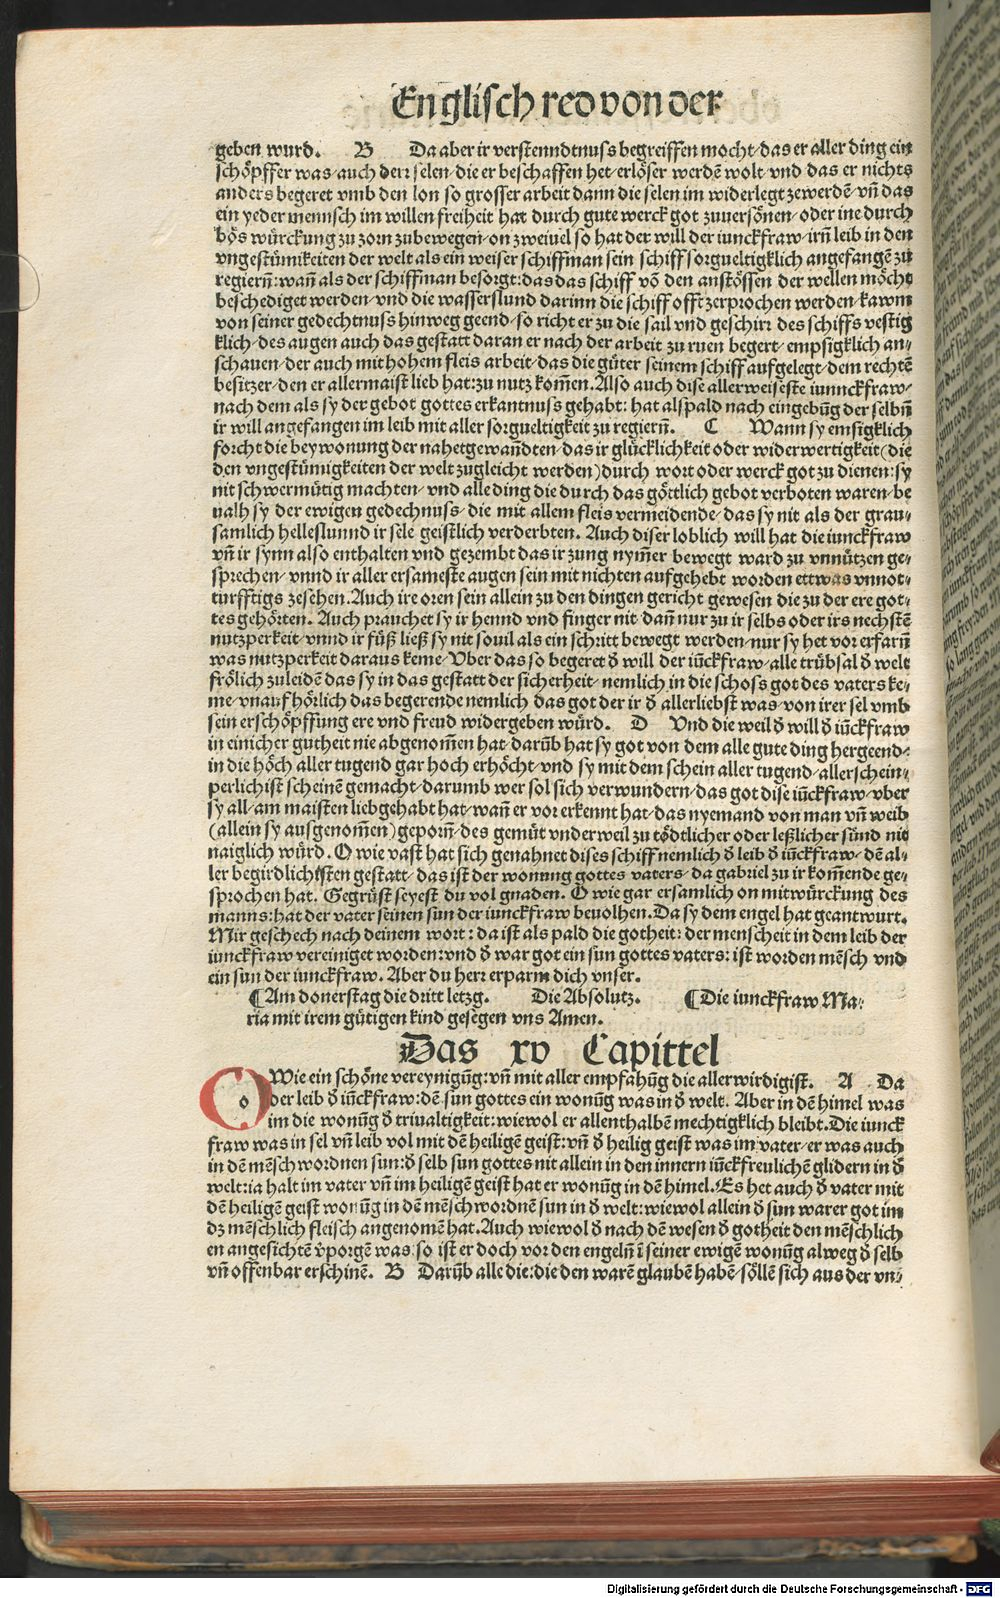 Englisch red von der
geben wurd. B Da aber ir verstenndtnuss begreiffen mocht/das er aller ding ein
schöpffer was/auch derr selen/die er beschaffen het/erlöser werdē wolt/vnd das er nichts
anders begeret vmb den lon so grosser arbeit dann die selen im widerlegt zewerdē/vñ das
ein yeder mennsch im willen freiheit hat durch gute werck got zuuersönen/oder ine durch
bös würckung zu zorn zubewegen/on zweiuel so hat der will der iunckfraw/irñ leib in den
vngestümikeiten der welt als ein weiser schiffman sein schiff sorgueltigklich angefangē zu
regierñ:wañ als der schiffman besorgt:das das schiff võ den anstössen der wellen möcht
beschediget werden/vnd die wasserslund darinn die schiff offt zerprochen werden/kawm
von seiner gedechtnuss hinweg geend/so richt er zu die sail vnd geschirr des schiffs vestig
klich/des augen auch das gestatt daran er nach der arbeit zu ruen begert/empsigklich an/
schauen/der auch mit hohem fleis arbeit/das die güter seinem schiff aufgelegt/dem rechtē
besitzer/den er allermaist lieb hat:zu nutz kom̄en.Also auch dise allerweiseste iunnckfraw/
nach dem als sy der gebot gottes erkantnuss gehabt: hat alspald nach eingebũg der selbñ
ir will angefangen im leib mit aller sorgueltigkeit zu regierñ. C Wann sy emsigklich
forcht die beywonung der nahetgewañdten/das ir glücklichkeit oder widerwertigkeit (die
den vngestümigkeiten der welt zugleicht werden)durch wort oder werck got zu dienen:sy
nit schwermütig machten/vnd alle ding die durch das göttlich gebot verboten waren/be
ualh sy der ewigen gedechnuss/die mit allem fleis vermeidende/das sy nit als der grau/
samlich helleslunnd ir sele geistlich verderbten. Auch diser loblich will hat die iunckfraw
vñ ir synn also enthalten vnd gezembt das ir zung nym̄er bewegt ward zu vnnützen ge/
sprechen/vnnd ir aller ersameste augen sein mit nichten aufgehebt worden ettwas vnnot/
turfftigs zesehen.Auch ire oren sein allein zu den dingen gericht gewesen die zu der ere got/
tes gehörten. Auch prauchet sy ir hennd vnd finger nit dañ nur zu ir selbs oder irs nechstē
nutzperkeit/vnnd ir füß ließ sy nit souil als ein schritt bewegt werden/nur sy het vor erfarñ
was nutzperkeit daraus keme/Vber das so begeret d̄ will der iũckfraw/alle trübsal d̄ welt
frölich zuleidē das sy in das gestatt der sicherheit/nemlich in die schoss got des vaters ke/
me/vnaufhörlich das begerende nemlich das got der ir d̄ allerliebst was/von irer sel vmb
sein erschöpffung ere vnd freud widergeben würd. D Vnd die weil d̄ will d̄ iũckfraw
in einicher gutheit nie abgenom̄en hat/darũb hat sy got von dem alle gute ding hergeend:
in die höch aller tugend gar hoch erhöcht/vnd sy mit dem schein aller tugend/allerschein/
perlichist scheinē gemacht/darumb wer sol sich verwundern/das got dise iũckfraw/vber
sy all/am maisten liebgehabt hat/wañ er vor erkennt hat/das nyemand von man vñ weib
(allein sy ausgenom̄en)geporñ/des gemüt vnderweil zu tödtlicher oder leßlicher sünd nit
naiglich würd. O wie vast hat sich genahnet dises schiff nemlich d̄ leib d̄ iũckfraw/dē al/
ler begirdlichisten gestatt/das ist der wonung gottes vaters/da gabriel zu ir kom̄ende ge/
sprochen hat. Gegrüst seyest du vol gnaden. O wie gar ersamlich on mitwürckung des
manns:hat der vater seinen sun der iunckfraw beuolhen.Da sy dem engel hat geantwurt.
Mir geschech nach deinem wort: da ist als pald die gotheit: der menscheit in dem leib der
iunckfraw vereiniget worden:vnd d̄ war got ein sun gottes vaters: ist worden mēsch vnd
ein sun der iunckfraw. Aber du herr erparm dich vnser.
¶Am donerstag die dritt letzg. Die Absolutz. ¶Die iunckfraw Ma/
ria mit irem gütigen kind gesegen vns Amen.
Das xv Capittel
O Wie ein schöne vereynigũg:vñ mit aller empfahũg die allerwirdigist. A Da
der leib d̄ iũckfraw:dē sun gottes ein wonũg was in d̄ welt. Aber in dē himel was
im die wonũg d̄ triualtigkeit:wiewol er allenthalbē mechtigklich bleibt.Die iunck
fraw was in sel vñ leib vol mit dē heiligē geist:vñ d̄ heilig geist was im vater/er was auch
in dē mēsch wordnen sun:d̄ selb sun gottes nit allein in den innern iũckfreulichē glidern in d̄
welt:ia halt im vater vñ im heiligē geist hat er wonũg in dē himel.Es het auch d̄ vater mit
dē heiligē geist wonũg in dē mēsch wordnē sun in d̄ welt:wiewol allein d̄ sun warer got im
dz mēschlich fleisch angenomē hat.Auch wiewol d̄ nach dē wesen d̄ gotheit den mēschlich
en angesichtē v̄porgē was:so ist er doch vor den engelñ ī seiner ewigē wonũg alweg d̄ selb
vñ offenbar erschinē. B Darũb alle die:die den warē glaubē habē/söllē sich aus der vn/
Digitalisierung gefördert durch die Deutsche Forschungsgemeinschaft - DFG